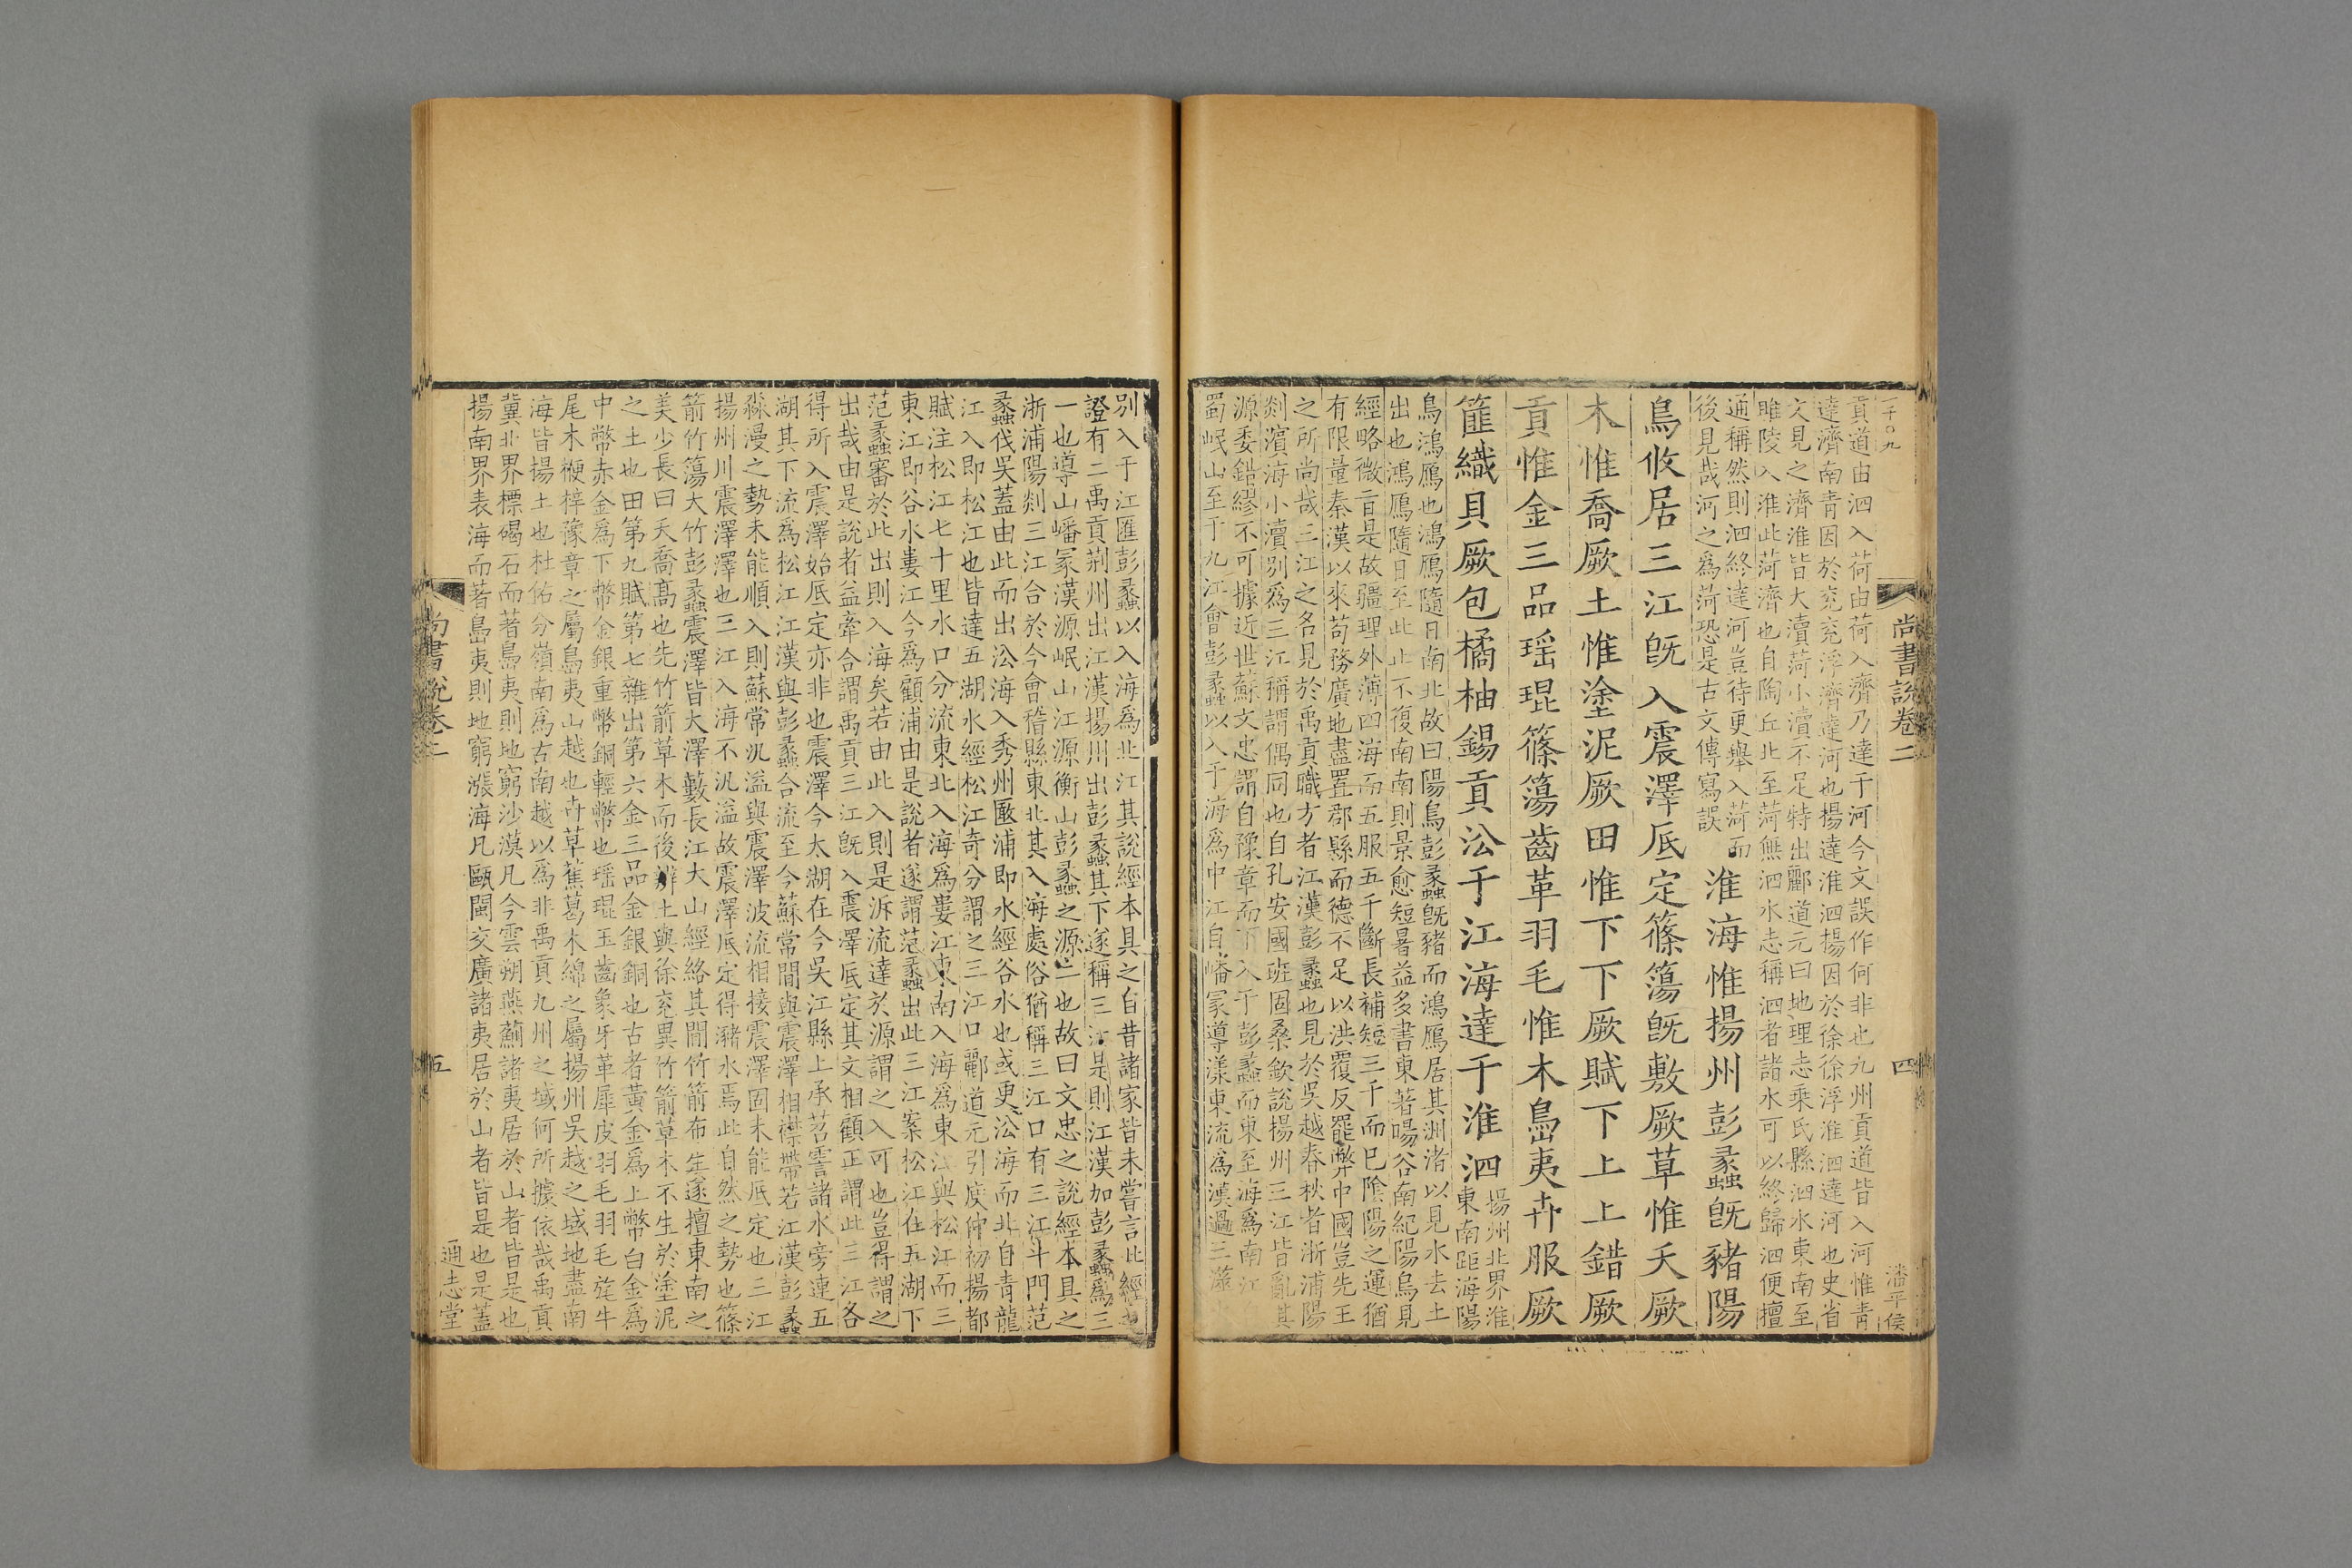 一千〇九
尚書說卷二
四
潘平侯
貢道由泗入荷由荷入濟乃達于河今文誤作何非也九州貢道皆入河惟青
達濟南青因於兖兖浮濟達河也揚達淮泗揚因於徐徐浮淮泗達河也史省
文見之濟淮皆大瀆荷小瀆不足特出酈道元曰地理志乘氏縣泗水東南至
睢陵入淮此荷濟也自陶丘北至荷無泗水志稱泗者諸水可以終歸泗便擅
通稱然則泗終達河豈待更舉入荷而
後見哉河之為荷恐是古文傳寫誤
淮海惟揚州彭蠡旣豬陽
鳥攸居三江旣入震澤厎定篠簜旣敷厥草惟夭厥
木惟喬厥土惟塗泥厥田惟下下厥賦下上上錯厥
貢惟金三品瑶琨篠簜齒革羽毛惟木島夷卉服厥
篚織貝厥包橘柚錫貢㳂于江海達于淮泗
揚州北界淮
東南距海陽
鳥鴻鴈也鴻鴈隨日南北故曰陽鳥彭蠡旣豬而鴻鴈居其洲渚以見水去土
出也鴻鴈隨日至此止不復南南則景愈短暑益多書東著暘谷南紀陽鳥見
經略微㫖是故疆理外薄四海而五服五千斷長補短三千而已陰陽之運猶
有限量秦漢以來苟務廣地盡置郡縣而德不足以洪覆反罷弊中國豈先王
之所尚哉三江之名見於禹貢職方者江漢彭蠡也見於吳越春秋者浙浦陽
剡濱海小瀆别為三江稱謂偶同也自孔安國班固桑欽說揚州三江皆亂其
源委錯繆不可據近世蘇文忠謂自豫章而下入于彭蠡而東至海為南江
蜀岷山至于九江會彭蠡以入于海為中江自嶓冢導漾東流為漢過三澨
别入于江匯彭蠡以入海為北江其說經本具之自昔諸家皆未嘗言此經
證有二禹貢荆州出江漢揚州出彭蠡其下遂稱三江是則江漢加彭蠡為三
一也導山嶓冢漢源岷山江源衡山彭蠡之源二也故曰文忠之說經本具之
浙浦陽剡三江合於今會稽縣東北其入海處俗猶稱三江口有三江斗門范
蠡伐吳蓋由此而出㳂海入秀州㕓浦即水經谷水也或更㳂海而北自青龍
江入即松江也皆達五湖水經松江奇分謂之三江口酈道元引庾仲初揚都
賦注松江七十里水口分流東北入海為婁江東南入海為東江與松江而三
東江即谷水婁江今為顧浦由是說者遂謂范蠡出此三江案松江在五湖下
范蠡審於此出則入海矣若由此入則是泝流達於源謂之入可也豈得謂之
出哉由是說者益牽合謂禹貢三江旣入震澤厎定其文相顧正謂此三江各
得所入震澤始厎定亦非也震澤今太湖在今吳江縣上承苕霅諸水旁連五
湖其下流為松江江漢與彭蠡合流至今蘇常間與震澤相襟帶若江漢彭蠡
淼漫之勢未能順入則蘇常汎溢與震澤波流相接震澤固未能厎定也三江
揚州川震澤澤也三江入海不汎溢故震澤厎定得瀦水焉此自然之勢也篠
箭竹簜大竹彭蠡震澤皆大澤藪長江大山經絡其間竹箭布生遂擅東南之
美少長曰夭喬髙也先竹箭草木而後辨土與徐兖異竹箭草木不生於塗泥
之土也田第九賦第七雜出第六金三品金銀銅也古者黄金為上幣白金為
中幣赤金為下幣金銀重幣銅輕幣也瑶琨玉齒象牙革犀皮羽毛羽毛旄牛
尾木楩梓豫章之屬島夷山越也卉草蕉葛木綿之屬揚州吳越之域地盡南
海皆揚土也杜佑分嶺南為古南越以為非禹貢九州之域何所據依哉禹貢
冀北界標碣石而著島夷則地窮沙漠凡今雲朔燕薊諸夷居於山者皆是也
揚南界表海而著島夷則地窮漲海凡甌閩交廣諸夷居於山者皆是也是蓋
尚書說卷二
五
通志堂